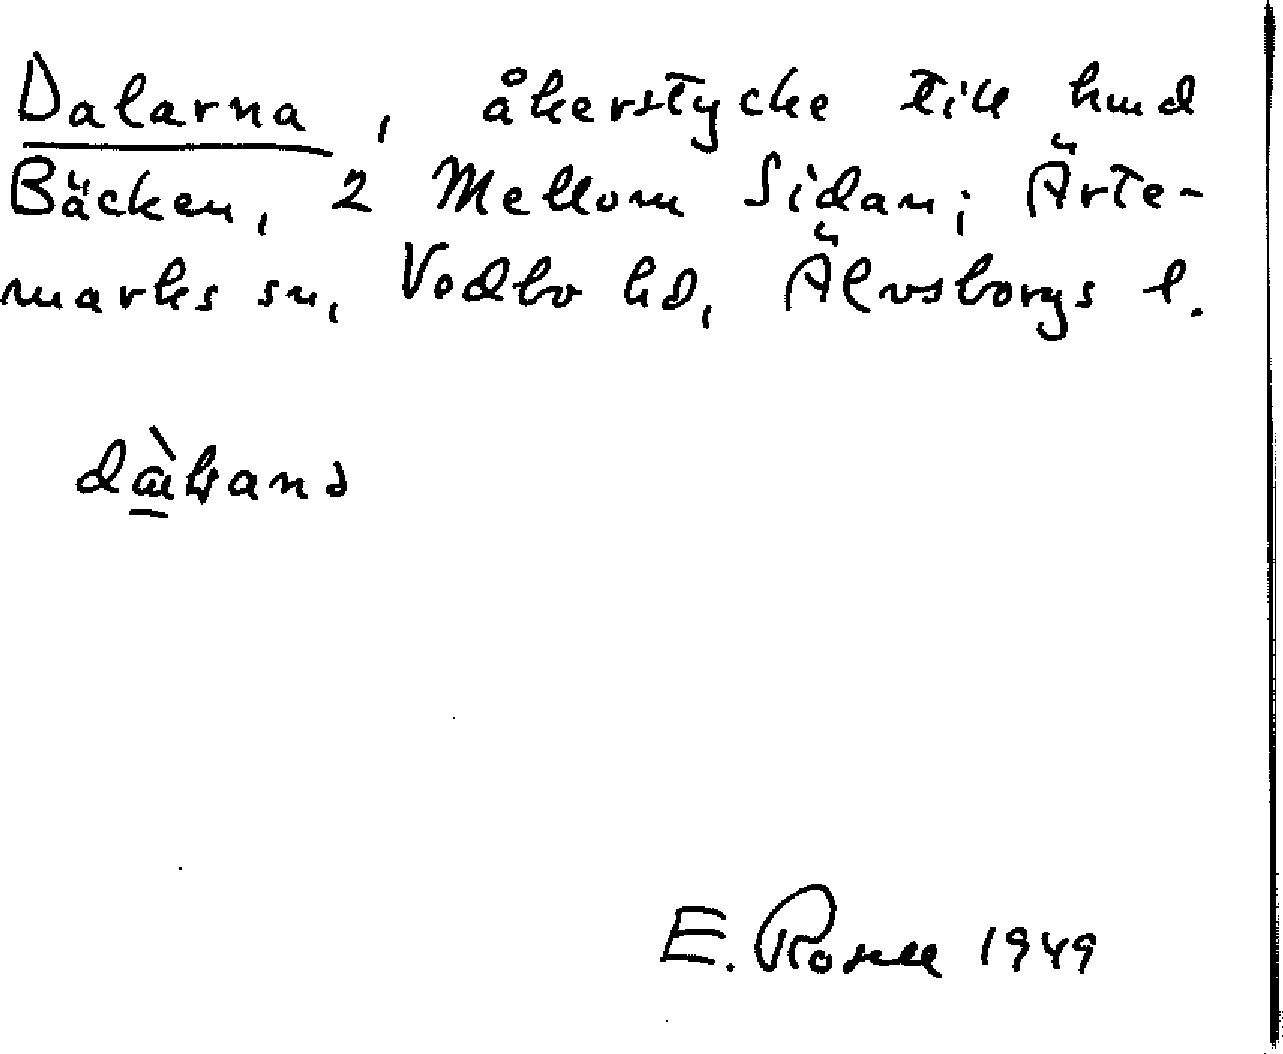 Dalarna, åkerstycke till hmd
Bäcken, 2 Mellom Sidan; Ärte-
marks sn, Vedbo hd, Älvsborgs l.
E. Rosell 1949